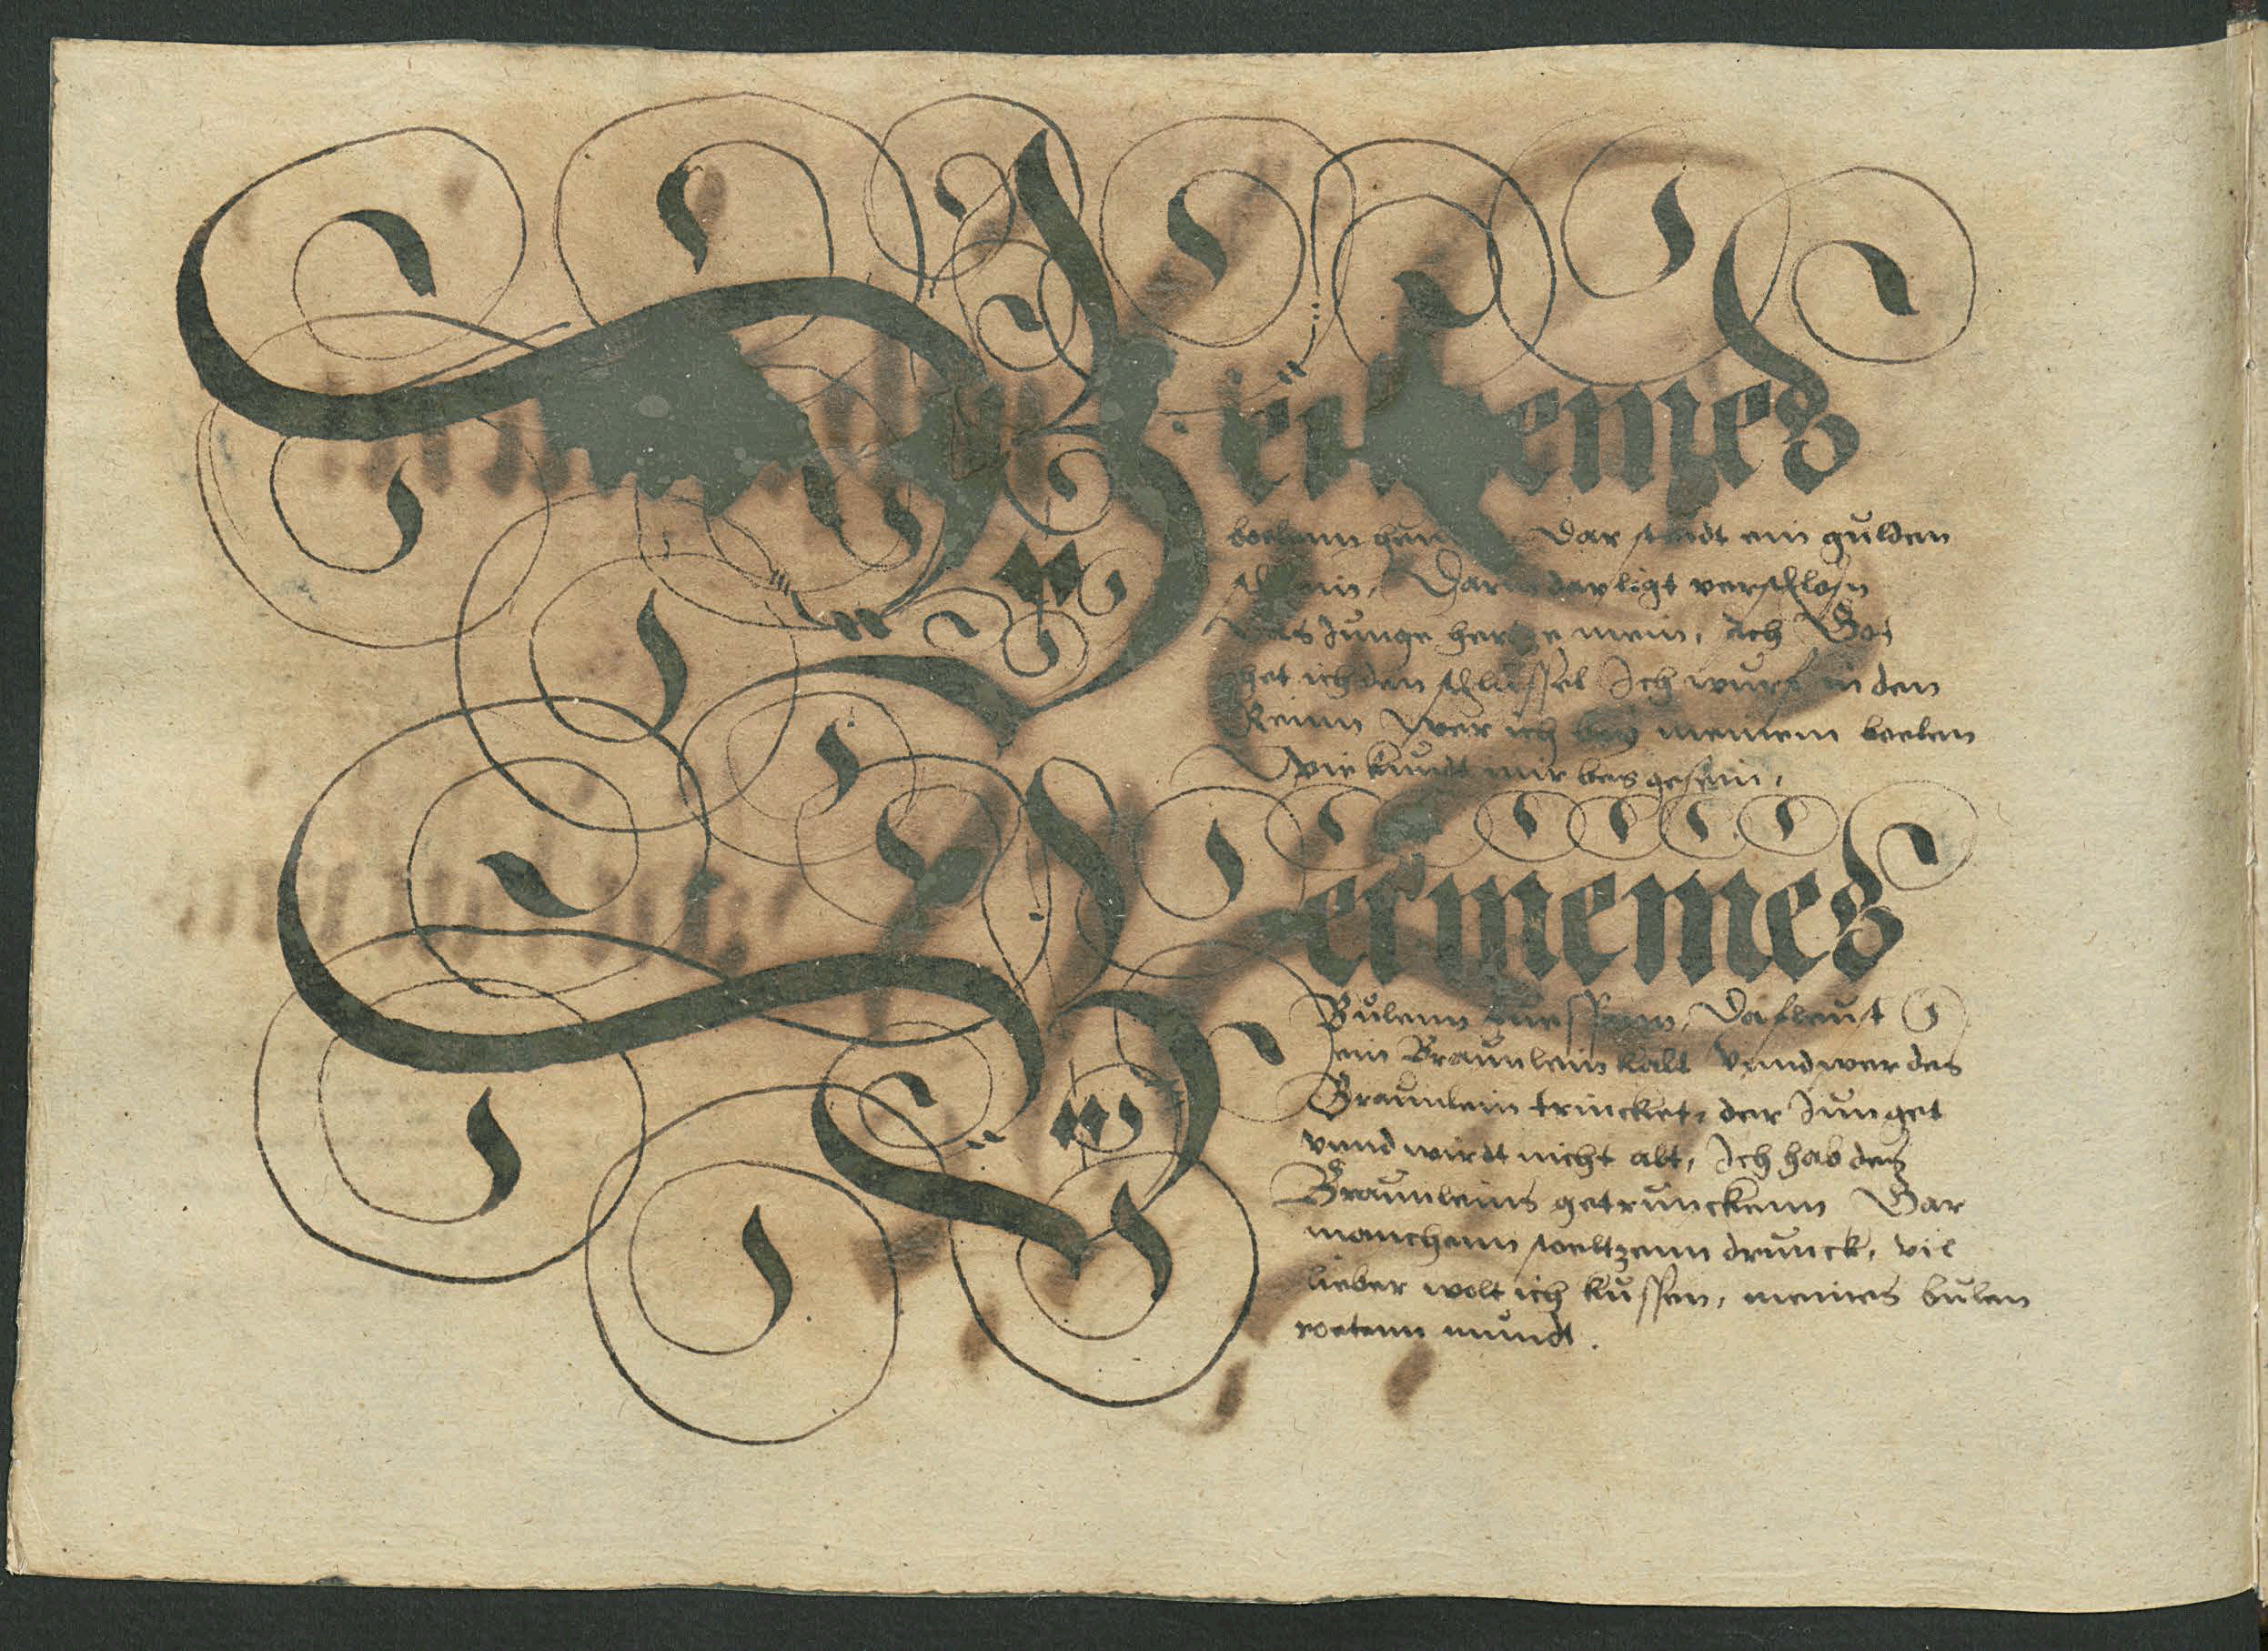 Bei meines
boelenn Dar stedt ein gulden
Darin dar ligt verschlosn
Das Junge hertze mein, Ach Got
het ich den schlussel Ich wurf in den
Reinn Wer ich bey meinem boelen
wie kundt mir bas gesein,
Bei meines
Bulenn fuessenn, Da fleust
ein Braunlein kalt vnnd wer des
Braunlein trincket, der Junget
vnnd wirdt nicht alt, Ich hab des
Braunleins getrunckenn Gar
manchenn stoeltzenn drunck, vil
lieber wolt ich kussen, meines bulen
roetenn mundt.